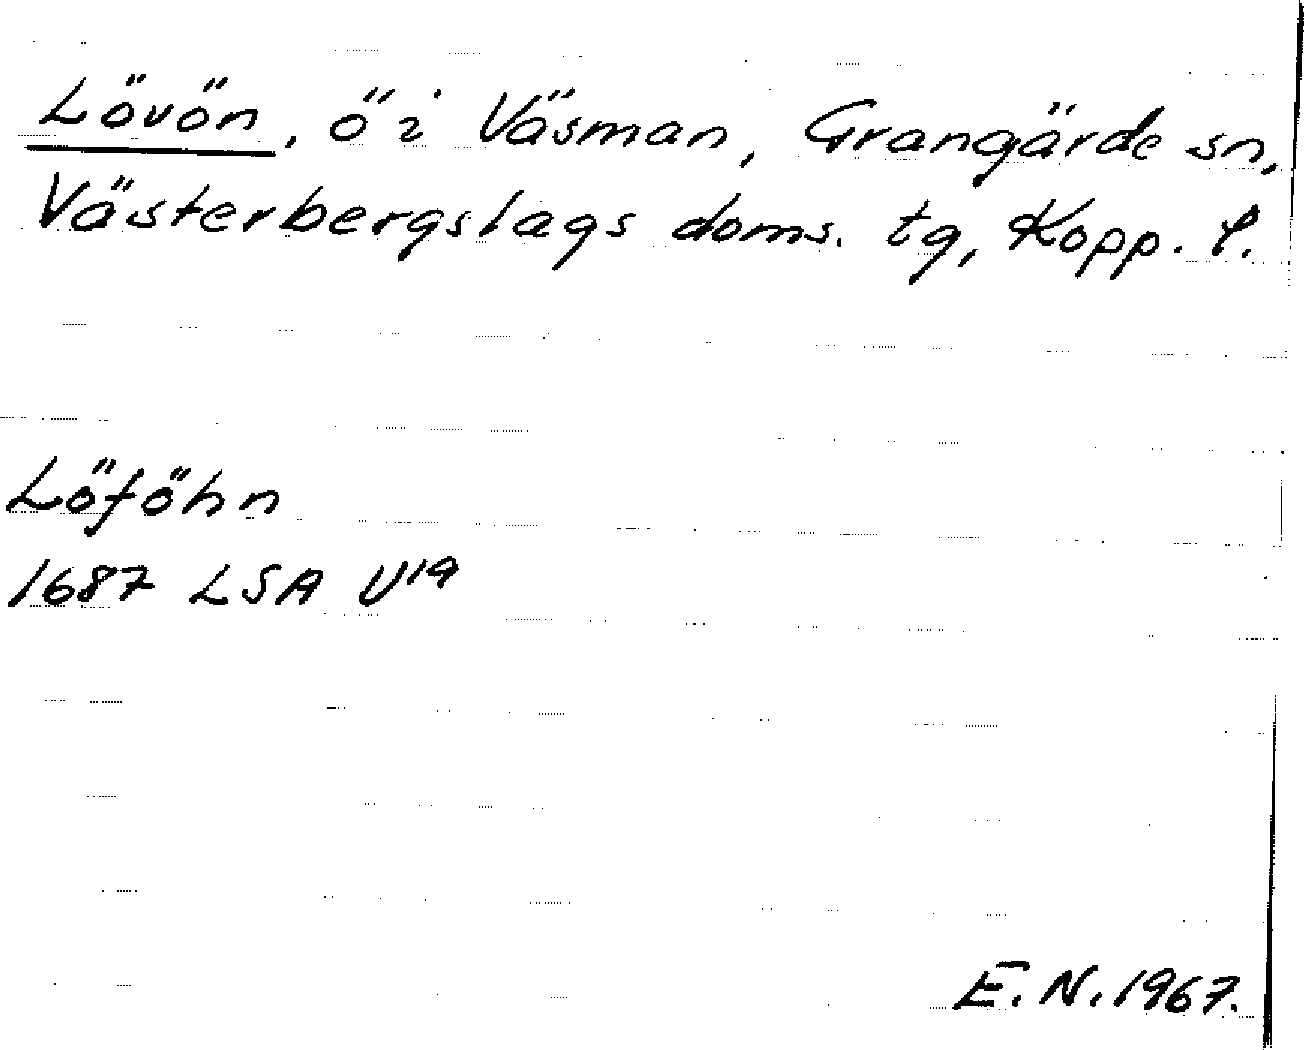 Lövön, ö i Väsman, Grangärde sn,
Västerbergslags doms. tg, Kopp. l.
Löföhn
1687 LSA U19
E.N. 1967.